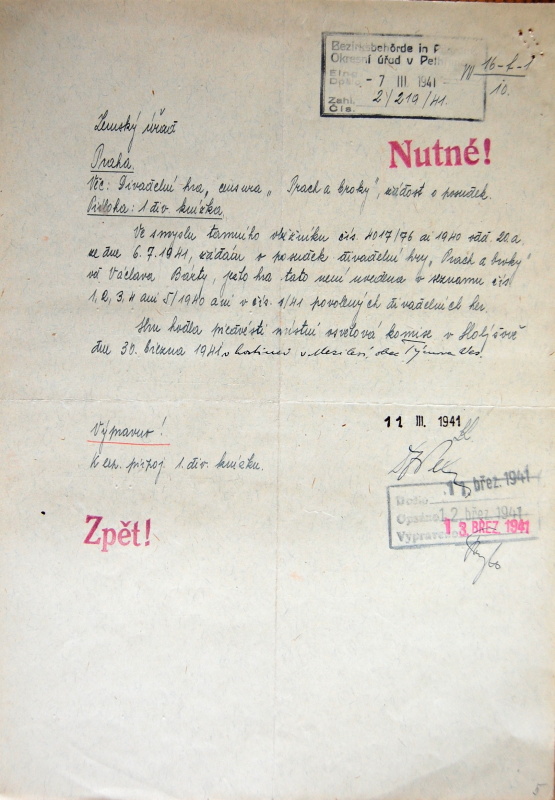 Bezirksbehörde in P
Okresní úřad v Peth
Eing.
Došlo - 7 III 1941
Zahl.
Čís. 2/219/41.
VII 16-f-1
10.
Zemský úřad
Praha.
Nutné!
Věc: Divadelní hra, censura „Prach a broky", žádost o posudek.
Příloha: 1 div. knížka.
Ve smyslu tamního oběžníku čís. 4017/76 ai 1940 odd. 20.a
ze dne 6.7.1941, žádám o posudek divadelní hry „Prach a broky"
od Václava Bárty, ježto hra tato není uvedena v seznamu čís.
1, 2, 3, 4 ani 5/1940 ani v čís. 1/41 povolených divadelních her.
Hru hodlá předvésti místní osvětová komise v Holýšově
dne 30. března 1941 v hostinci v obec Týnova Ves.
11 III. 1941
Vypraveno!
K exp. připoj 1. div. knížku.
Došlo 11 břez. 1941
Opsáno 12 břez 1941
Vypraveno 13 BŘEZ. 1941
Zpět!
5